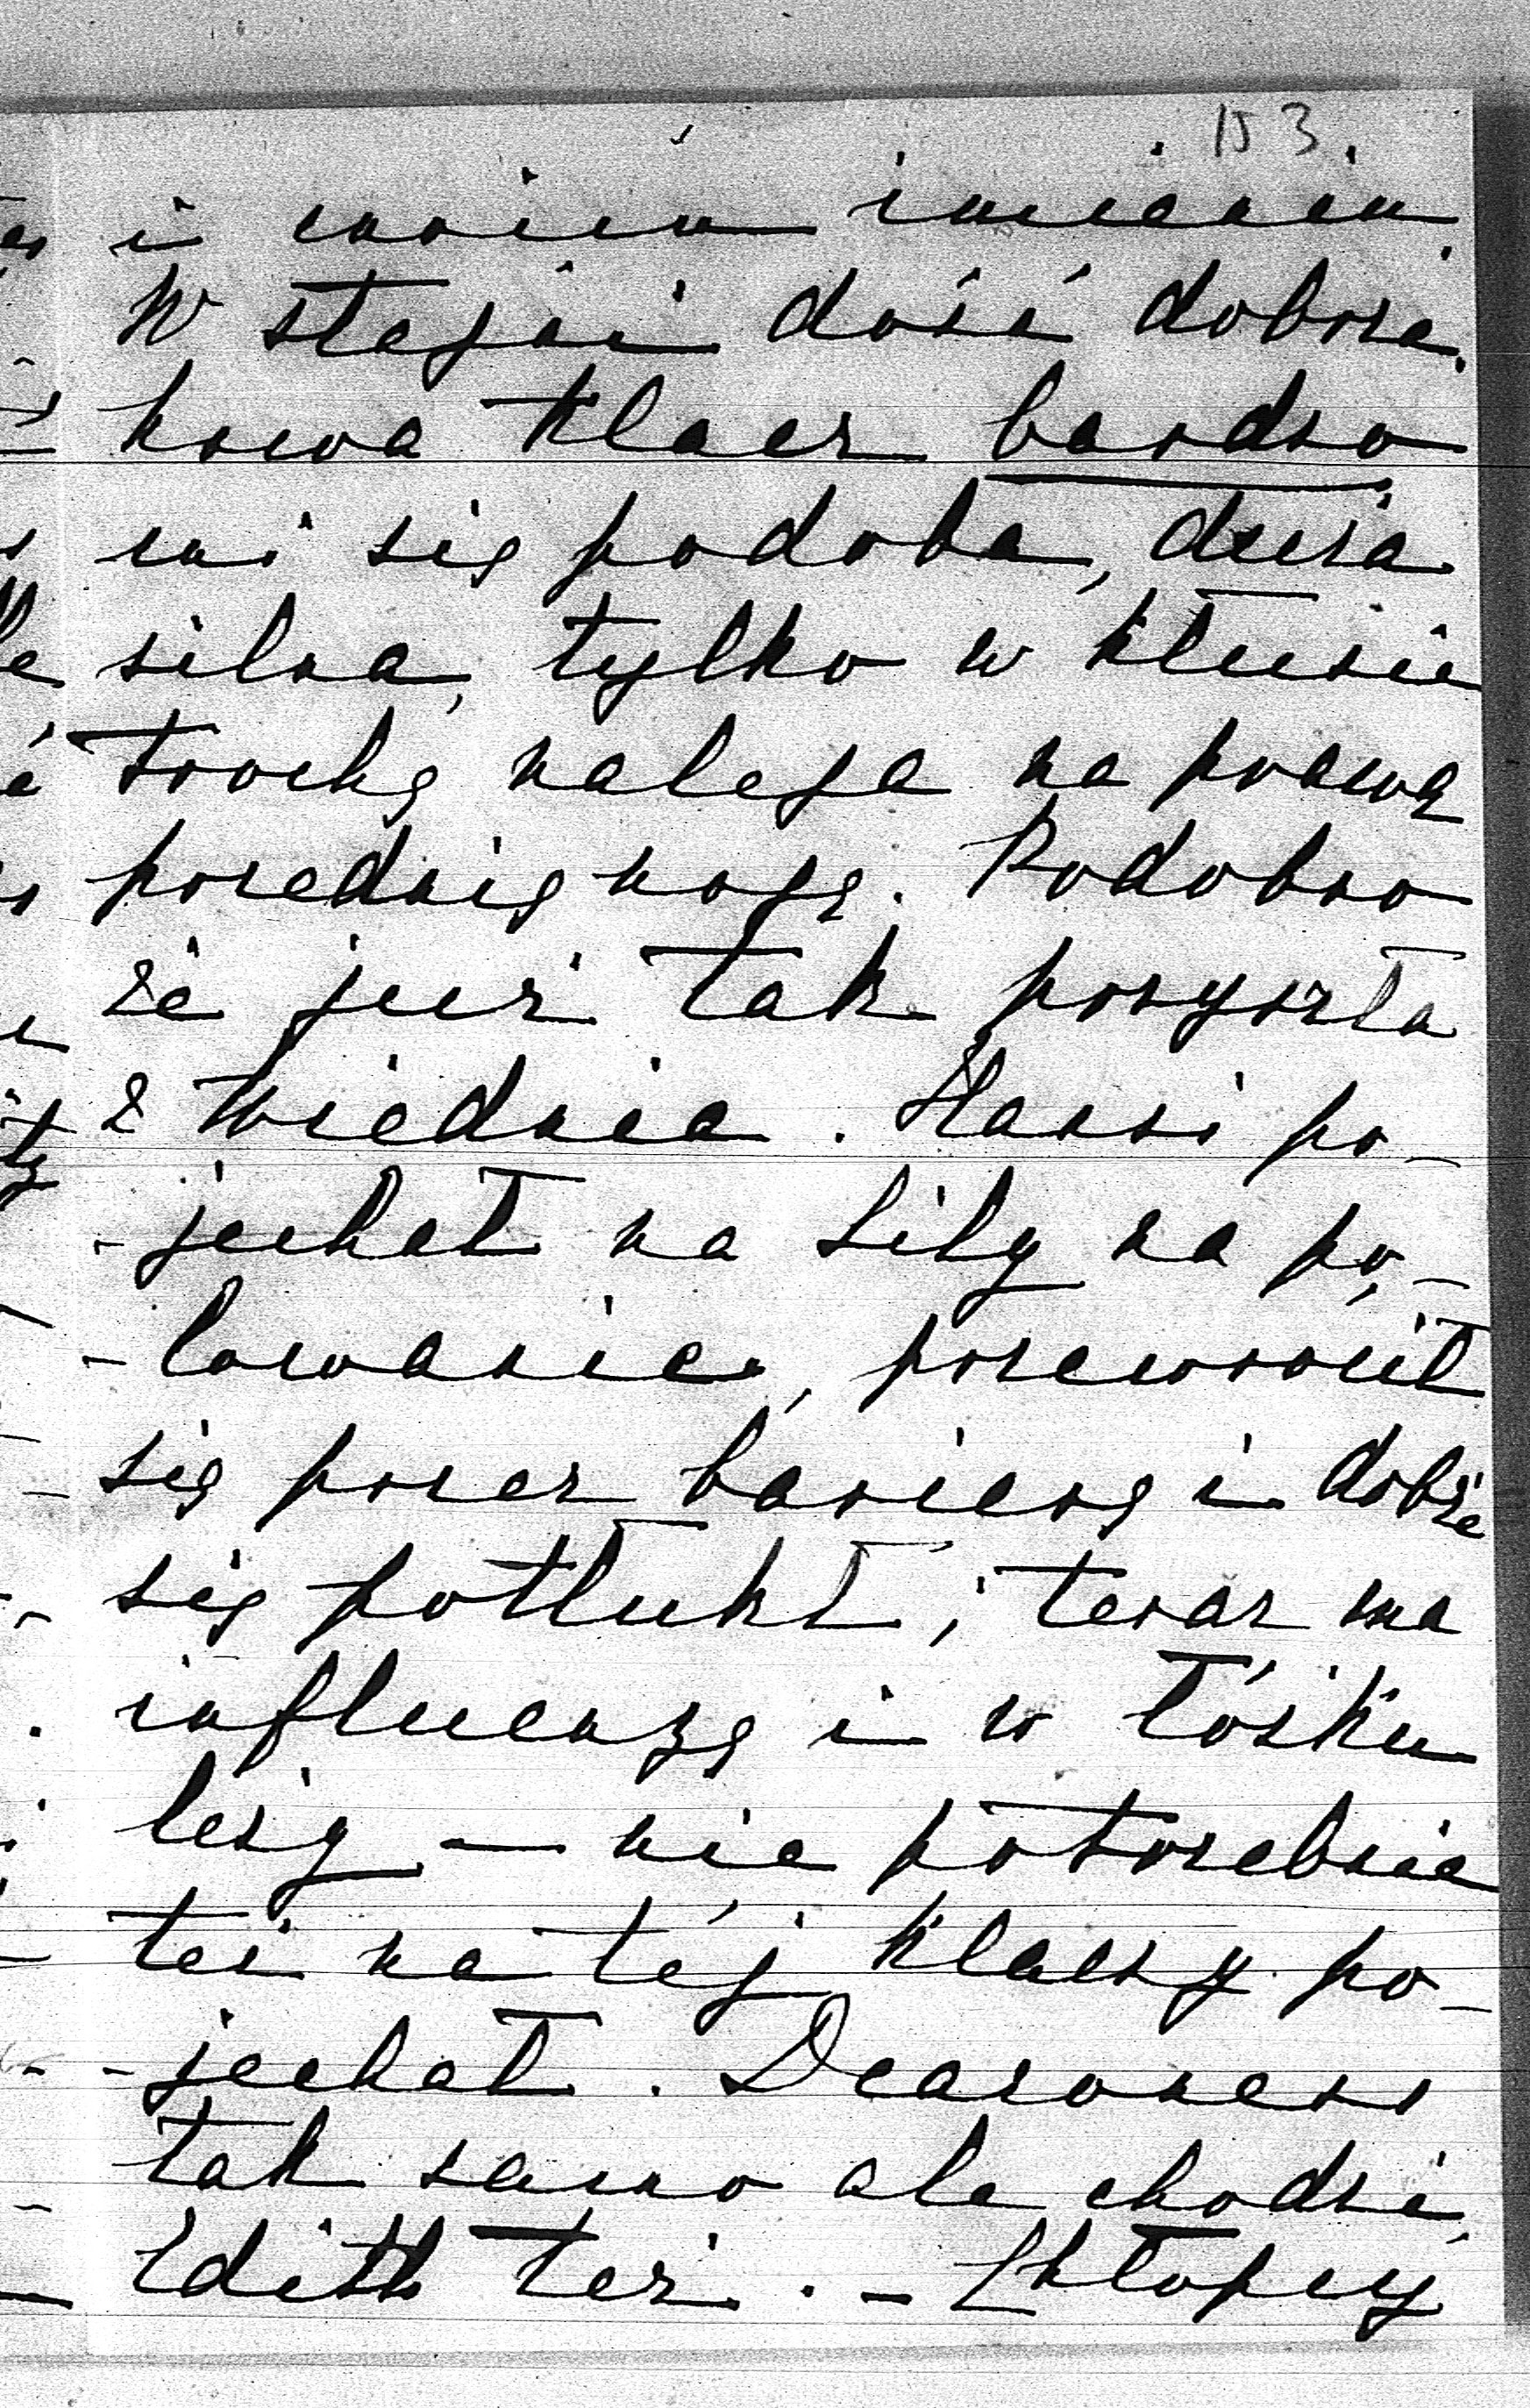 153.
i moim imieniu.
W stajni dość dobrze.
nowa klacz bardzo
mi się podoba, duża
silna, tylko w kłusie
trochę nalega na prawą
przednią nogę. Podobno
że już tak przyszła
z Wiednia. Hansi po-
-jechał na Lily na po-
-lowanie, przewrócił
się przez barierę i dobrze
się potłukł, teraz ma
influenzę i w łóżku
leży — nie potrzebnie
też na téj klaczy po-
-jechał. Dearoness
tak samo ale chodzi,
Edith też. - Chłopcy